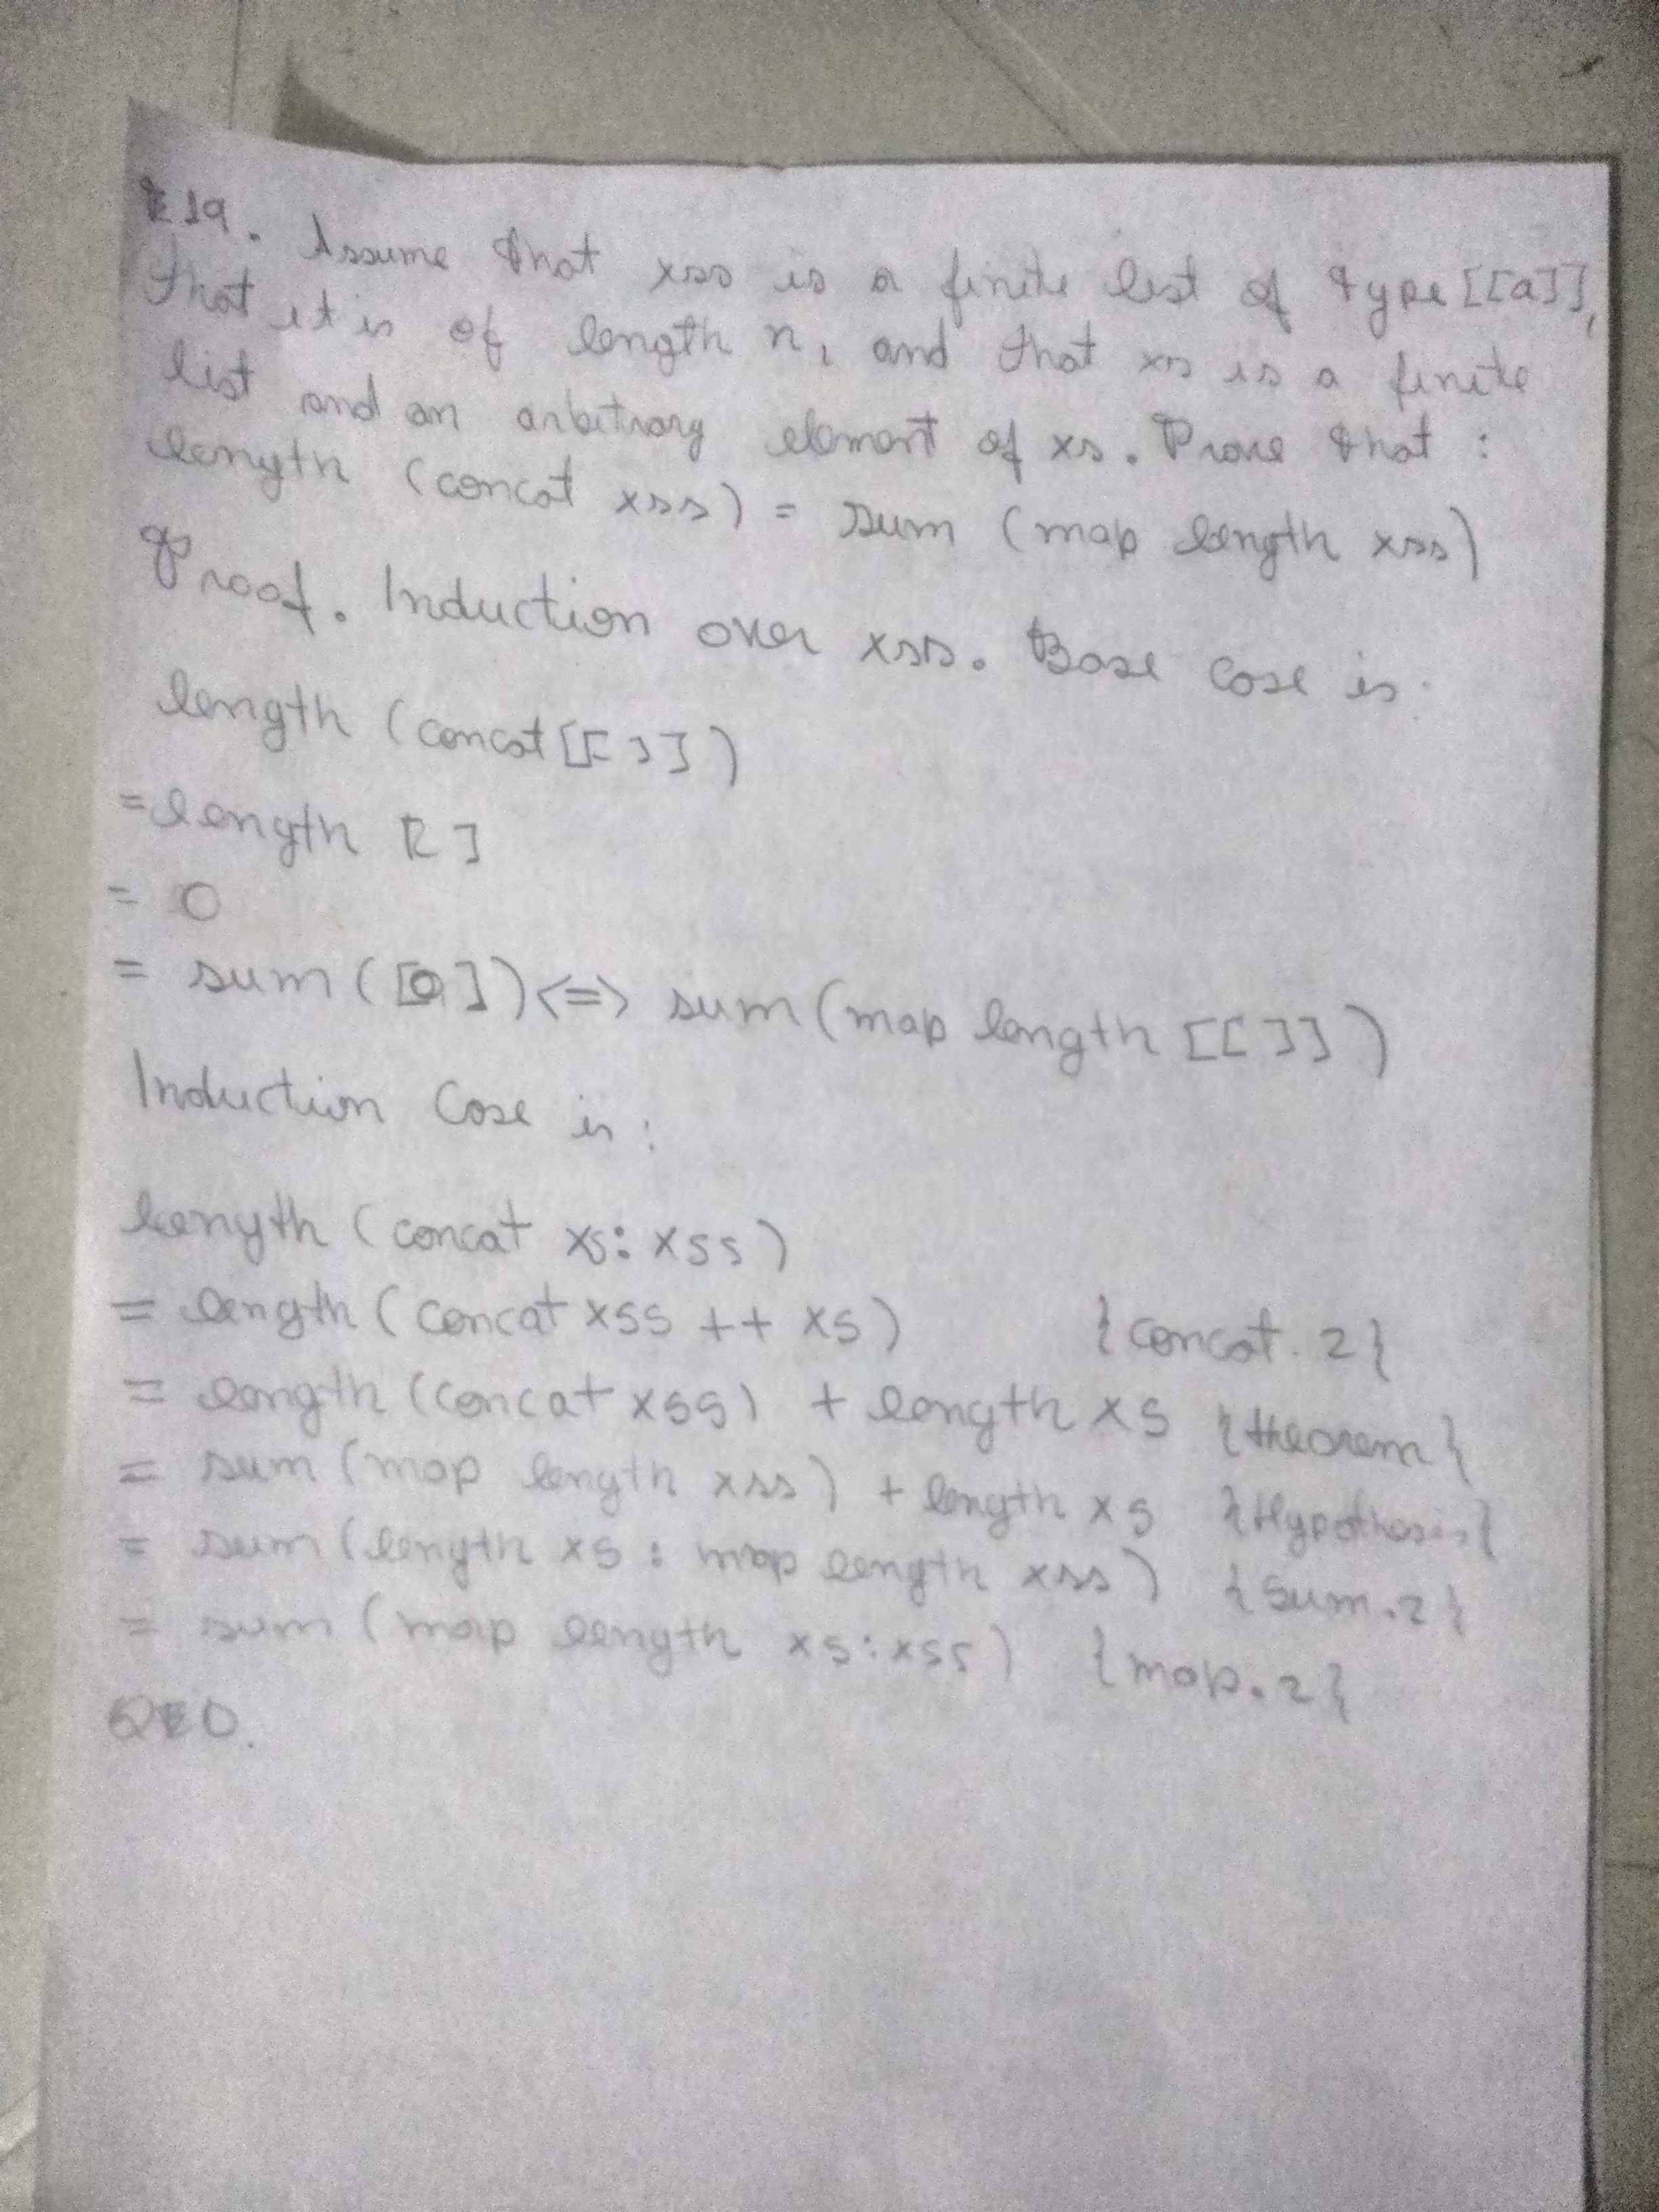 E19. Assume that xss is a finite list of type [[a]],
that it is of length n, and that xs is a finite
list and an arbitrary element of xs. Prove that :
length (concat xss) = sum (map length xss)
Proof. Induction over xss. Base Case is:
length (concat [[]])
= length []
= 0
= sum ([0]) <=> sum (map length [[]])
Induction Case is:
length (concat xs: xss)
= length (concat xss ++ xs) {concat.2}
= length (concat xss) + length xs {theorem}
= sum (map length xss) + length xs {Hypothesis}
= sum (length xs : map length xss) {sum.2}
= sum (map length xs:xss) {map.2}
QED.